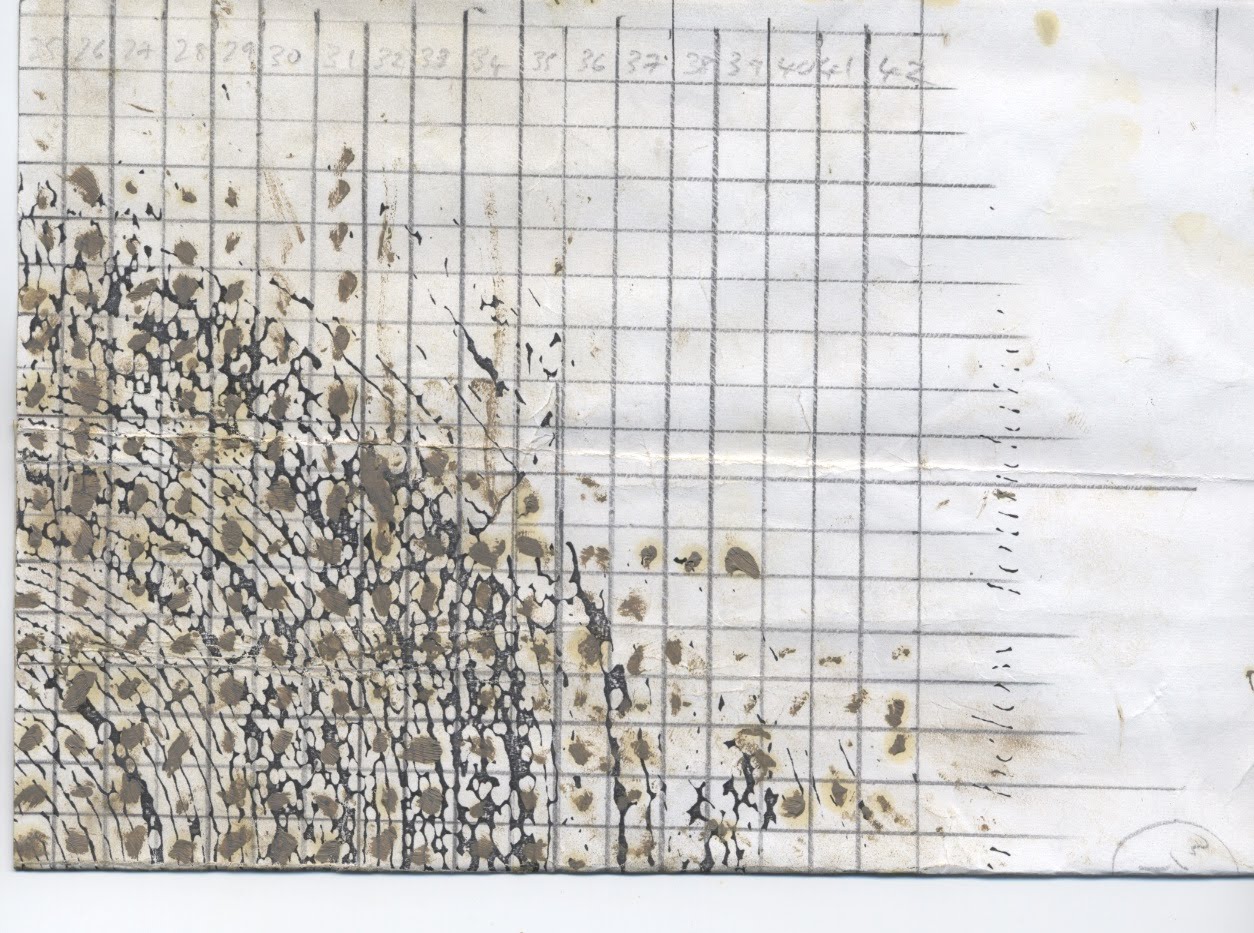 25 26 27 28 29 30 31 32 33 34 35 36 37 38 39 40 41 42